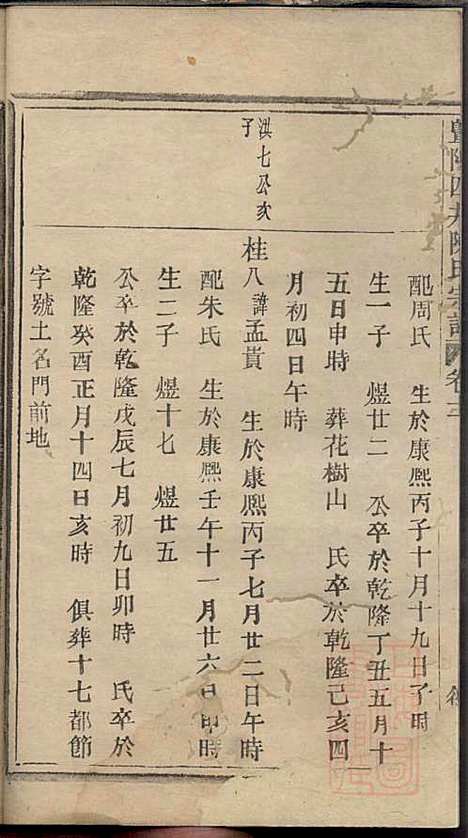 暨陽四安陳氏宗譜
卷二
配周氏 生於康熙丙子十月十九日子時
生一子 煜廿二 公卒於乾隆丁丑五月十
五日申時 葬花樹山 氏卒於乾隆己亥四
月初四日午時
淇七公次
子
桂八諱孟貴 生於康熙丙子七月廿二日午時
配朱氏 生於康熙壬午十一月廿六日申時
生二子 煜十七 煜廿五
公卒於乾隆戊辰七月初九日卯時 氏卒於
乾隆癸酉正月十四日亥時 俱葬十七都節
字號土名門前地